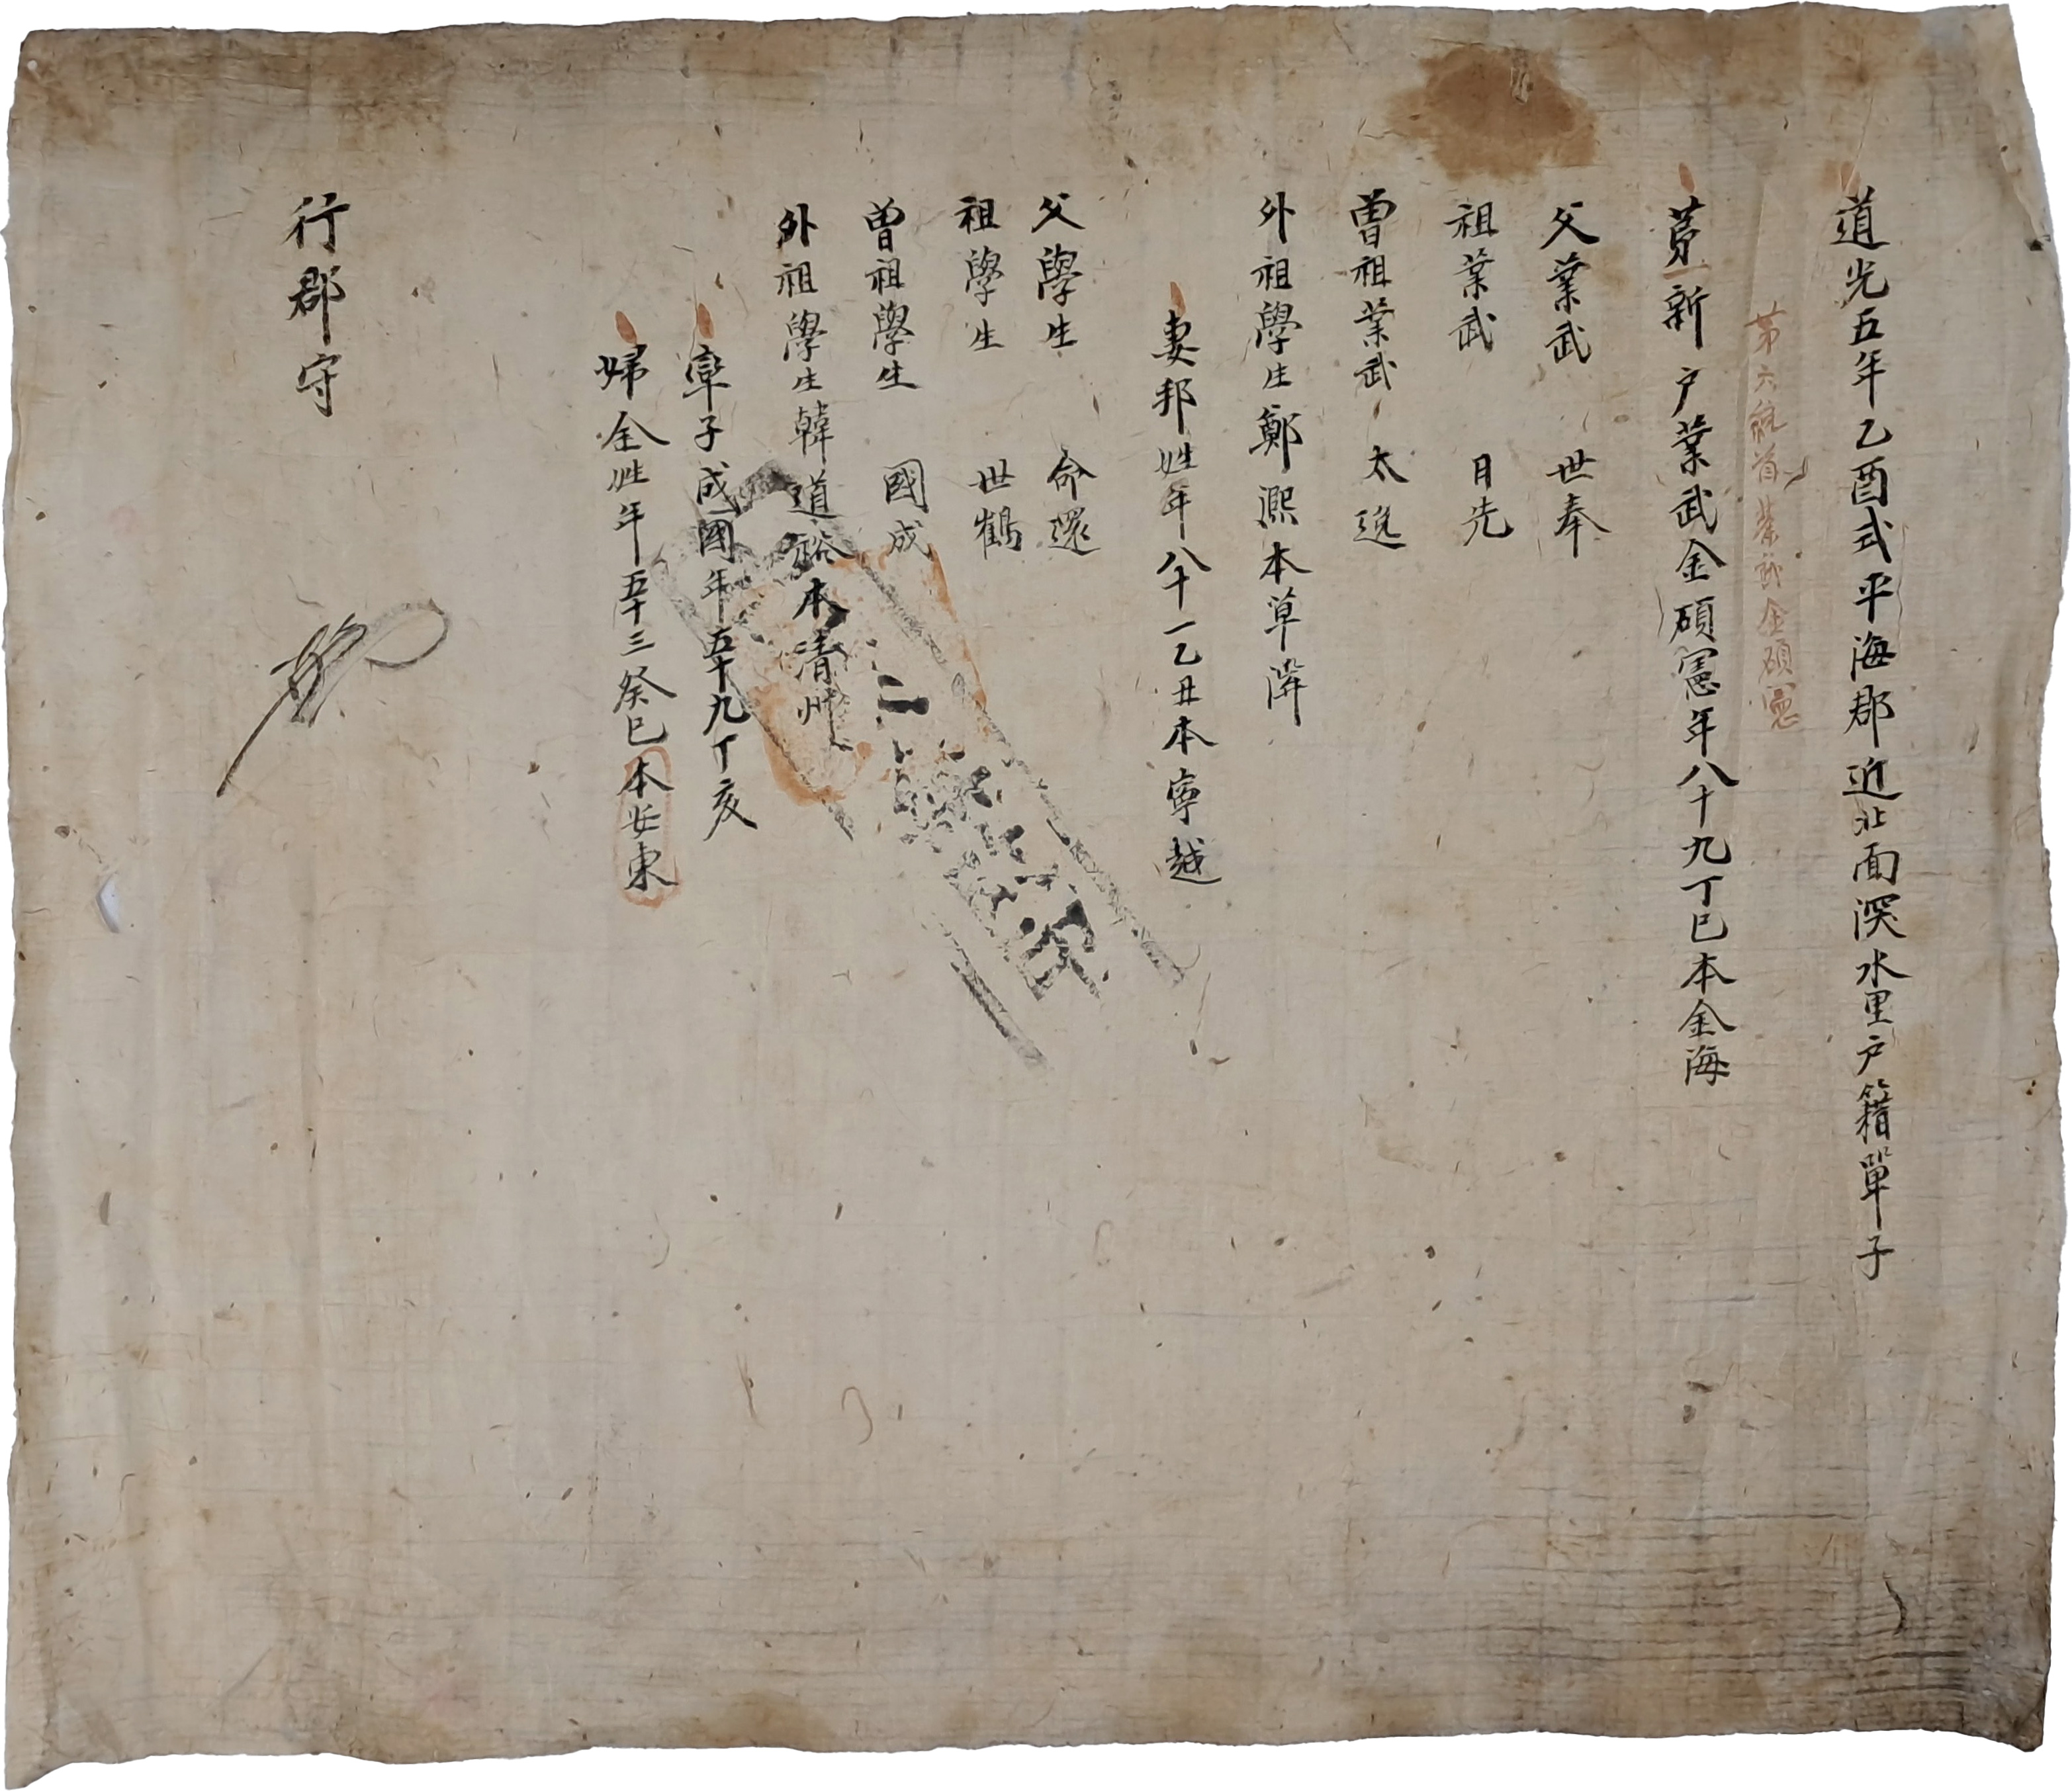 道光五年乙酉式平海郡近北面深水里戶籍單子
第六統首業武金碩憲
第一新戶業武金碩憲年八十九丁巳本金海
父業武 世奉
祖業武 日先
曾祖業武 太逸
外祖學生鄭凞本草溪
妻邦姓年八十一乙丑本寧越
父學生 命還
祖學生 世鶴
曾祖學生 國成
外祖學生韓道裕本清州
率子成國年五十九丁亥
婦全姓年五十三癸巳本安東
行郡守
印